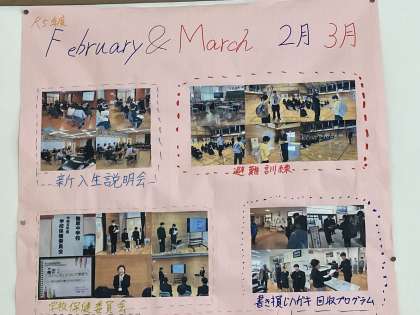 R5年度
February & March 2月 3月
新入生説明会
避難訓練
学校保健委員会
書き損じハガキ 回収プログラム